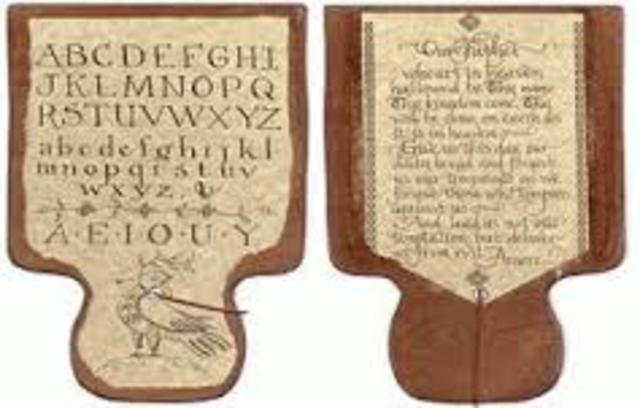 ABCDEFGHI
JKLMNOPQ
RSTUVWXYZ
abcdefghijkl
mnopqrstuv
wxyz, &
A·E·I·O·U·Y
Our Father
who art in heaven
hallowed be Thy name
Thy kingdom come. Thy
will be done, on earth as
it is in heaven
Give us this day our
daily bread and forgive
us our trespasses as we
forgive those who trespass
against us
And lead us not into
temptation, but deliver
us from evil Amen